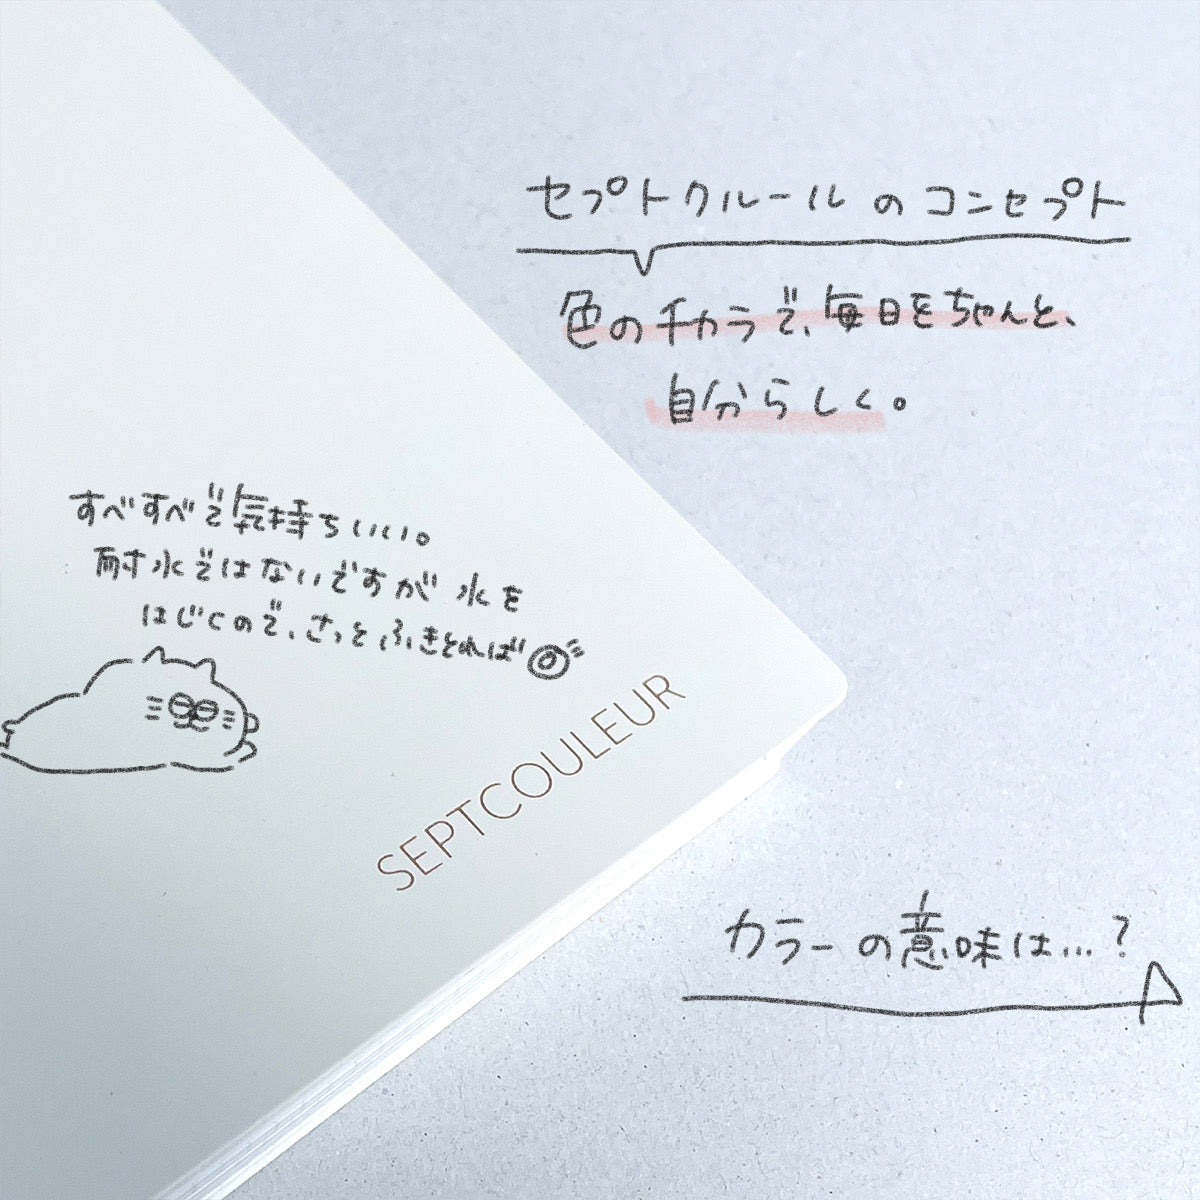 セプトクルールのコンセプト
色のチカラで、毎日をちゃんと、
自分らしく。
すべすべで気持ちいい。
耐水ではないですが水を
はじくので、さっとふきとれば◎
SEPTCOULEUR
カラーの意味は...?